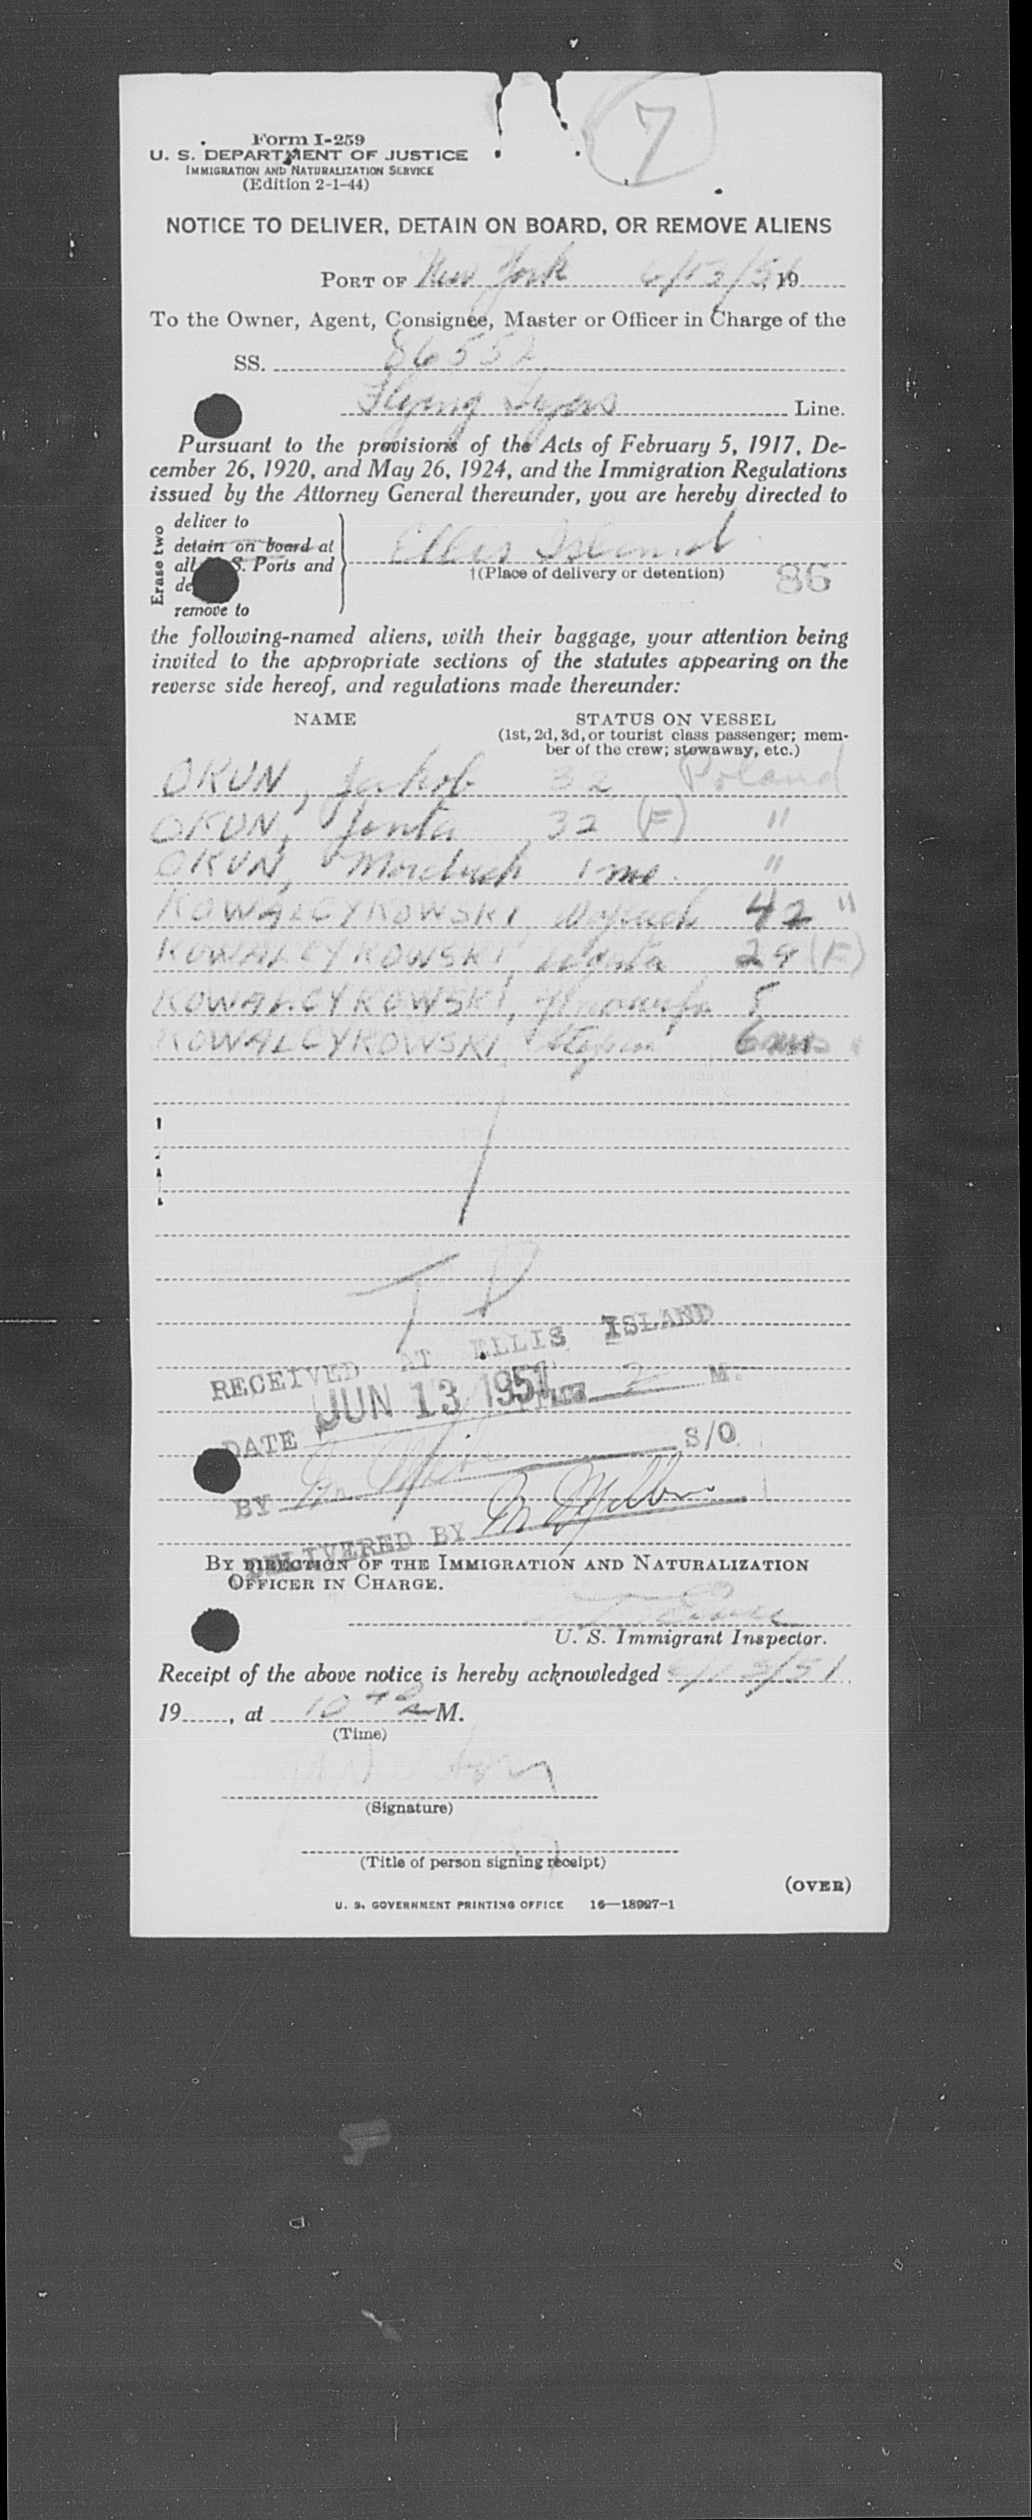 7
Form I-259
U. S. DEPARTMENT OF JUSTICE
IMMIGRATION AND NATURALIZATION SERVICE
(Edition 2-1-44)
NOTICE TO DELIVER, DETAIN ON BOARD, OR REMOVE ALIENS
PORT OF New York 6/13/51, 19
To the Owner, Agent, Consignee, Master or Officer in Charge of the
SS. 86552
Flying Tygers Line.
Pursuant to the provisions of the Acts of February 5, 1917, De-
cember 26, 1920, and May 26, 1924, and the Immigration Regulations
issued by the Attorney General thereunder, you are hereby directed to
Erase two
deliver to
detain on board at
all S. Ports and
de
remove to
Ellis Island
†(Place of delivery or detention)
86
the following-named aliens, with their baggage, your attention being
invited to the appropriate sections of the statutes appearing on the
reverse side hereof, and regulations made thereunder:
NAME STATUS ON VESSEL
(1st, 2d, 3d, or tourist class passenger; mem-
ber of the crew; stowaway, etc.)
OKUN, Jakob 32 Poland
OKUN, Jenta 32 (F) "
OKUN, Morduch 1 mo. "
KOWALCYKOWSKI 42 "
KOWALCYKOWSKI, 29 (F)
KOWALCYKOWSKI, 5
KOWALCYKOWSKI, 6 mos
RECEIVED AT ELLIS ISLAND
DATE JUN 13 1951 TIME 2 M.
BY S/O
DELIVERED BY
BY DIRECTION OF THE IMMIGRATION AND NATURALIZATION
OFFICER IN CHARGE.
U. S. Immigrant Inspector.
Receipt of the above notice is hereby acknowledged 6/13/51
19, at 10 M.
(Time)
(Signature)
(Title of person signing receipt)
(OVER)
U. S. GOVERNMENT PRINTING OFFICE 16—18927-1